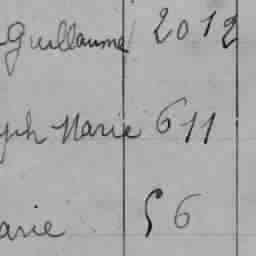 Guillaume 2012
ph Marie 611
arie 56